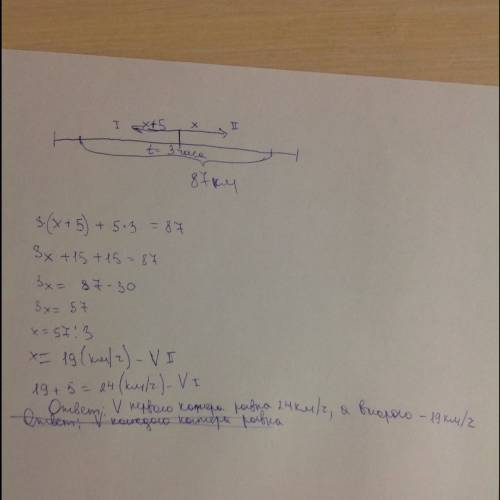 I x+5 x II
t= 3 часа
87 км
3(x+5) + 5·3 = 87
3x +15 +15 = 87
3x = 87 - 30
3x = 57
x = 57 : 3
x = 19 (км/ч) - V II
19 + 5 = 24 (км/ч) - V I
Ответ: V первого катера равна 24 км/ч, а второго - 19 км/ч
Ответ: V каждого катера равна